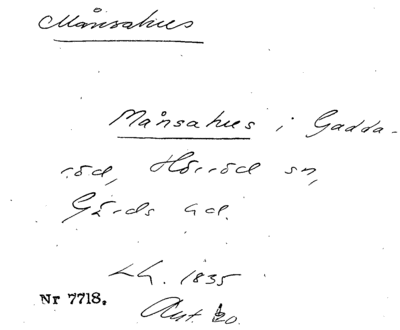 Månsahus
Månsahus i Gadda-
röd, Hörröd sn,
Gärds hd.
Lh. 1835
Nr 7718.
Ant. 20.